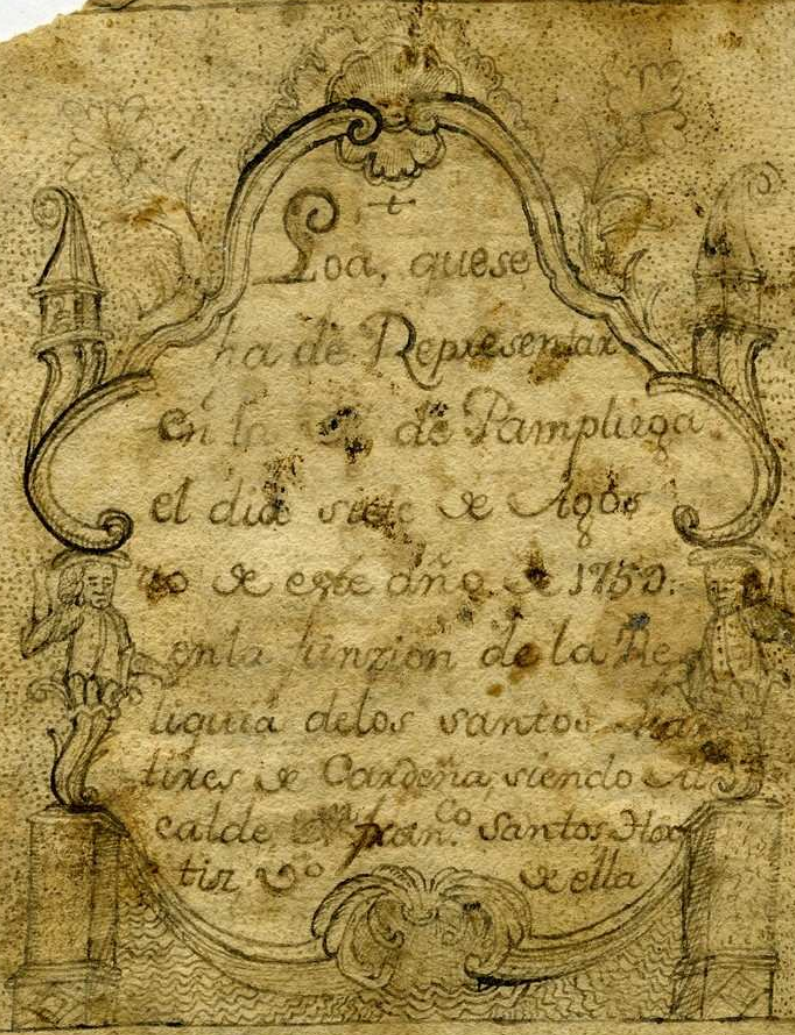 Loa, quese
ha de Representar
en la de Pampliega
el dia siete de Agos
to de este año. de 1750:
en la funzion de la Re
liquia delos santos Mar
tires de Cardeña, siendo Al
calde, Dn. fran.co Santos
tiz, Vo de ella